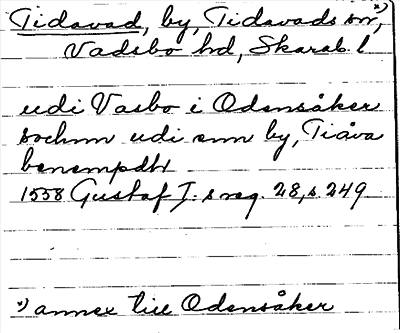 Tidavad, by, Tidavads sn, *)
Vadsbo hd, Skarab. l
udi Vasbo i Odensåker
sochnn udi enn by, Tiåva
benempdh
1558 Gustaf I:s reg. 28, s. 249
*) annex till Odensåker